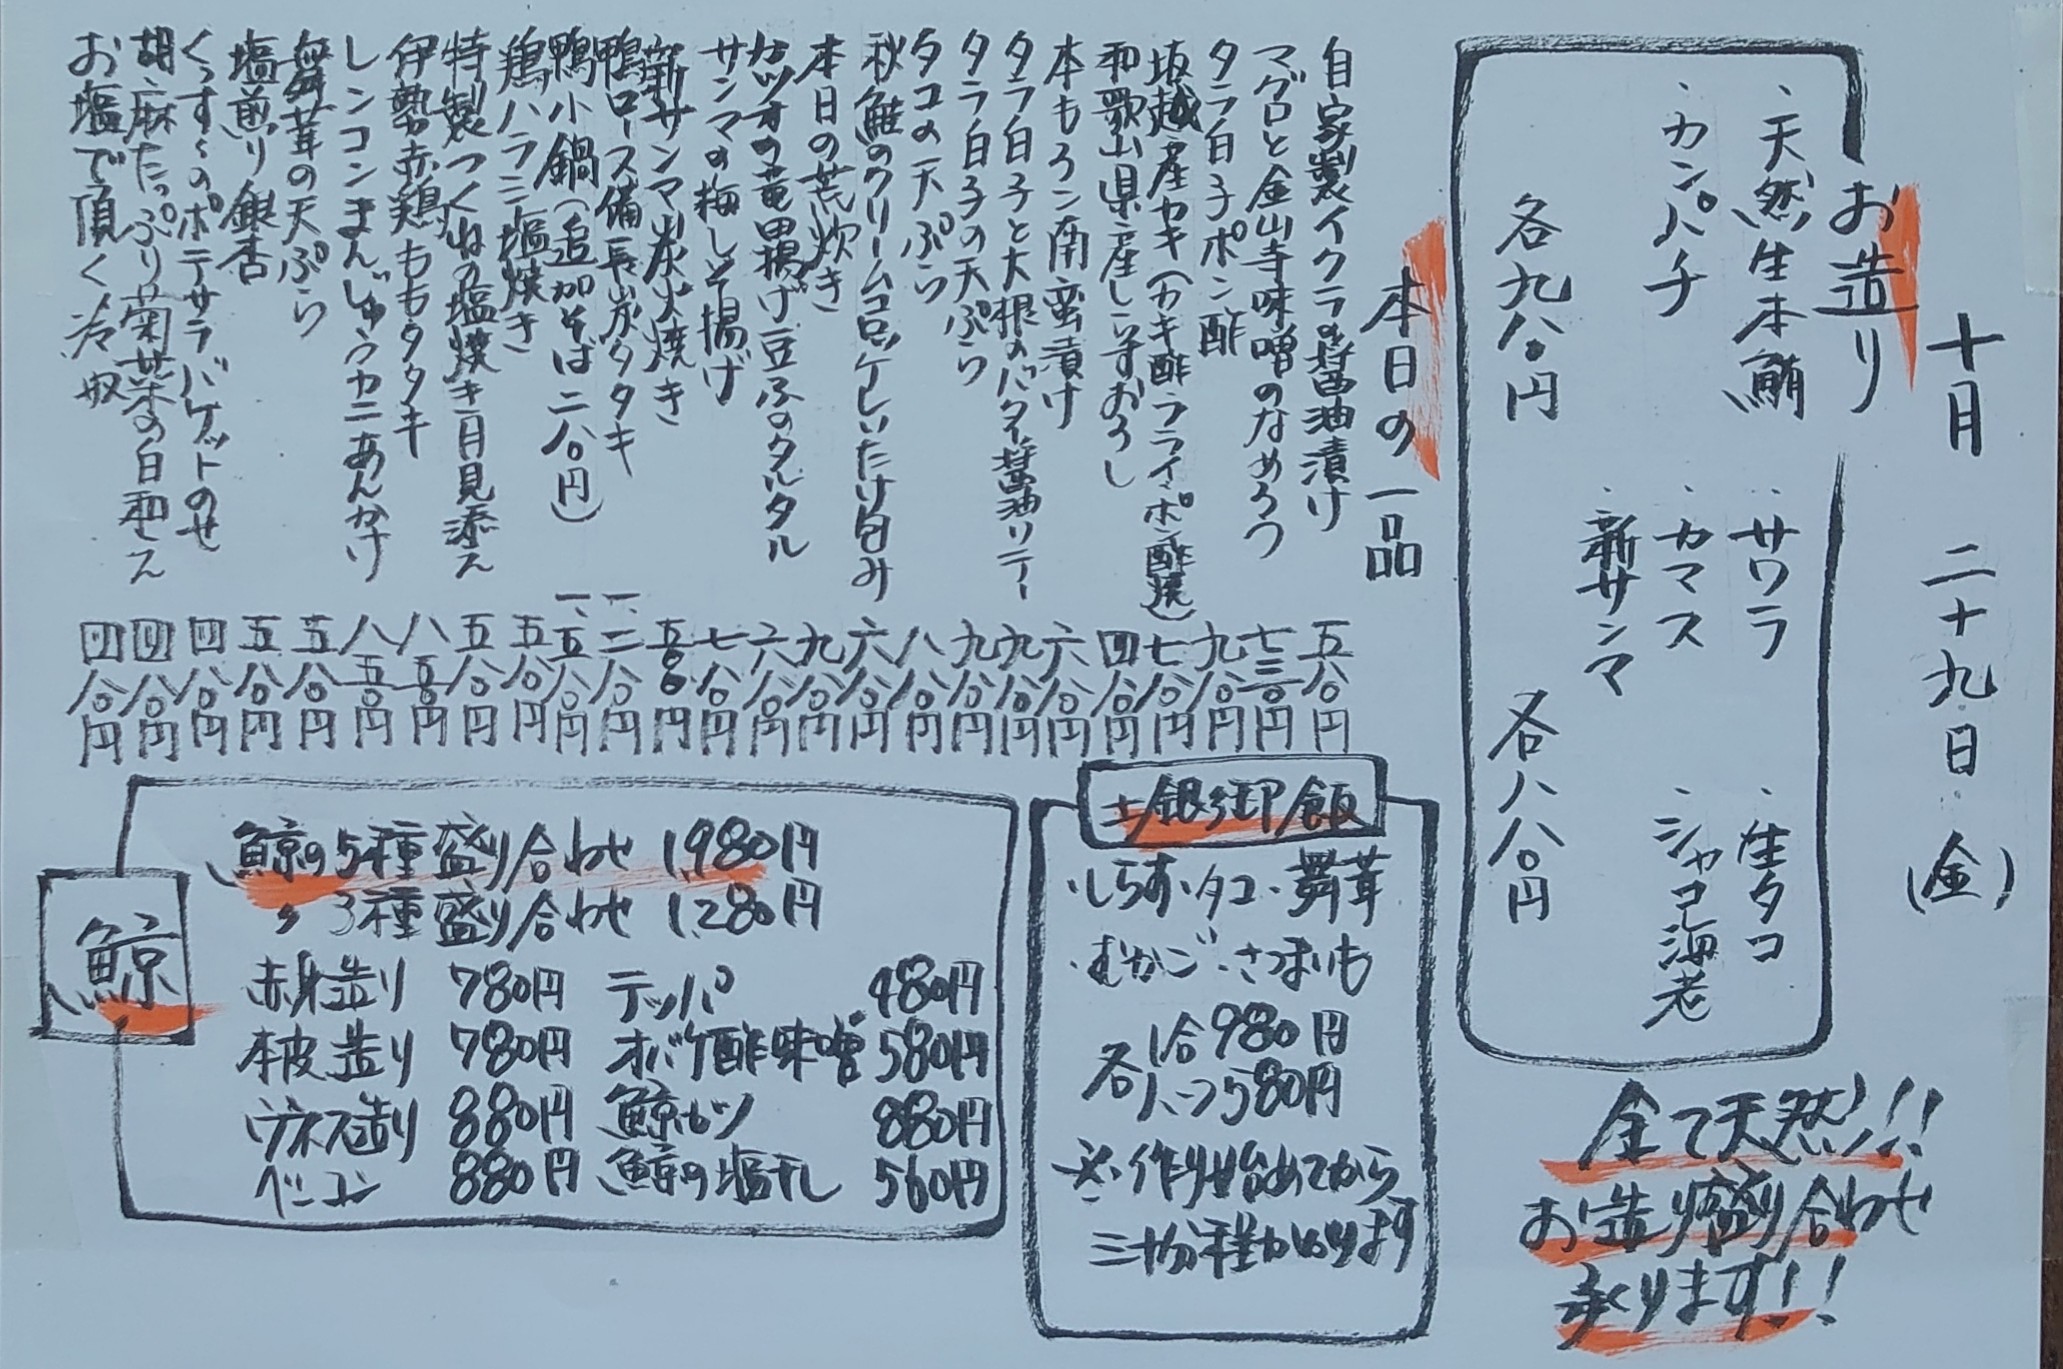 十月 二十九日(金)
お造り
・天然生本鮪 ・サワラ ・生タコ
・カンパチ ・カマス ・シャコ海老
・新サンマ
各九八〇円 各八八〇円
全て天然!!
お造り盛り合わせ
承ります!!
本日の一品
自家製イクラの醤油漬け 五八〇円
マグロと金山寺味噌のなめろう 七三〇円
タラ白子ポン酢 九八〇円
坂越産カキ(カキ酢・フライ・ポン酢焼) 七八〇円
和歌山県産しらすおろし 四八〇円
本もろこ南蛮漬け 六八〇円
タラ白子と大根のバター醤油ソテー 九八〇円
タラ白子の天ぷら 九八〇円
タコの天ぷら 八八〇円
秋鮭のクリームコロッケしいたけ包み 六八〇円
本日の荒炊き 九八〇円
カツオの竜田揚げ豆ふのタルタル 六八〇円
サンマの梅しそ揚げ 七八〇円
新サンマ炭火焼き 五五〇円
鴨ロース備長炭タタキ 一、二八〇円
鴨小鍋(追加そば二八〇円) 一、五八〇円
鶏ハラミ塩焼き 五八〇円
特製つくねの塩焼き月見添え 五八〇円
伊勢赤鶏ももタタキ 八五〇円
レンコンまんじゅうカニあんかけ 八五〇円
舞茸の天ぷら 五八〇円
塩煎り銀杏 五八〇円
くっすんのポテサラバケットのせ 四八〇円
胡麻たっぷり菊菜の白和え 四八〇円
お塩で頂く冷奴 四八〇円
土鍋御飯
・しらす・タコ・舞茸
・むかご・さつまいも
各 1合980円
ハーフ580円
※作り始めてから
三十分程かかります
鯨
鯨の5種盛り合わせ 1,980円
〃 3種盛り合わせ 1,280円
赤身造り 780円 テッパ 480円
本皮造り 780円 オバケ酢味噌 580円
ウネス造り 880円 鯨カツ 880円
ベーコン 880円 鯨の塩干し 560円